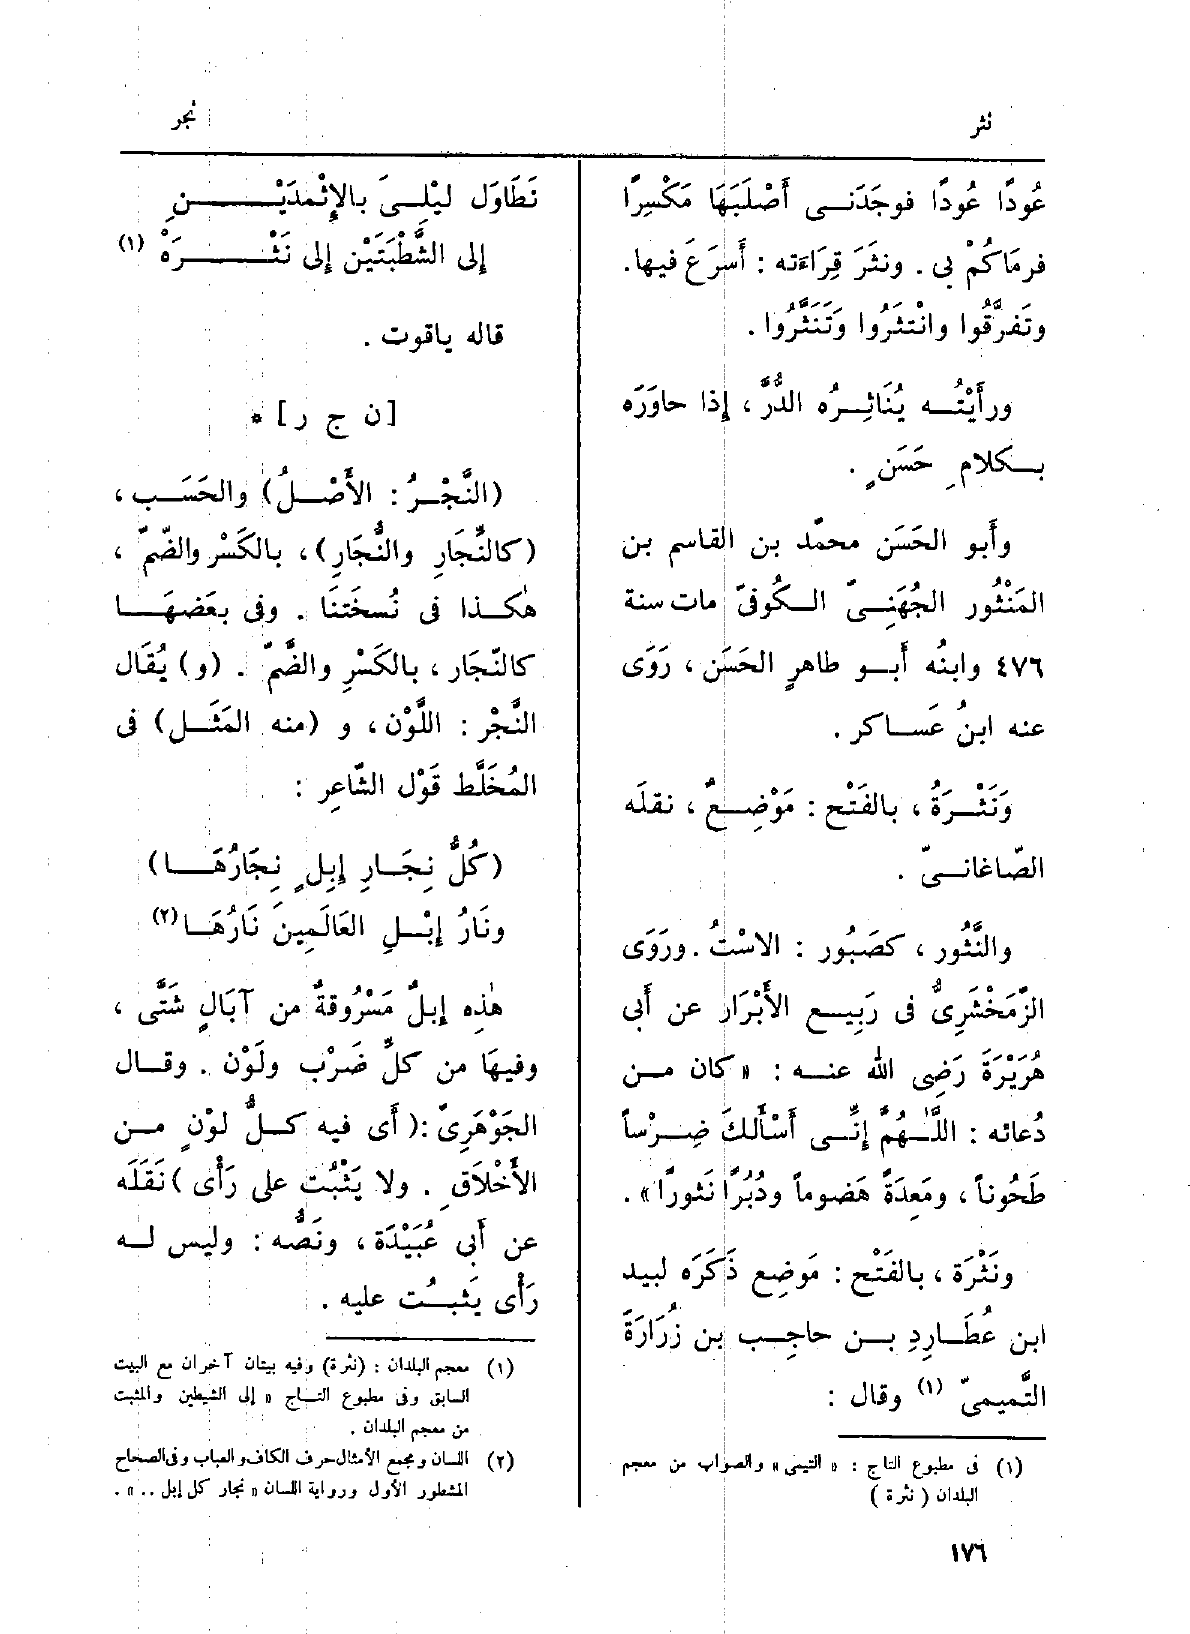 نثر
نجر
عُودًا عُودًا فوجَدَنـى أَصْلَبَهَا مَكْسِرًا
فرمَاكُمْ بى . ونثَرَ قِرَاءَته : أَسرَعَ فيها.
وتَفرَّقُوا وانْتثَرُوا وَتَنَثَّرُوا .
ورأَيْتُـه يُنَاثِـرُه الدُّرَّ ، إِذا حاوَرَه
بـكلامٍ حَسَنٍ .
وأَبو الحَسَن محمّد بن القاسم بن
المَنْثُور الجُهَنِـىّ الـكُوفىّ مات سنة
٤٧٦ وابنُه أَبـو طاهرٍ الحَسَن ، رَوَى
عنه ابنُ عَسَـاكر .
وَنَثْـرَةُ ، بالفَتْح : مَوْضِـعٌ ، نقلَه
الصّاغانـىّ .
والنَّثُور ، كصَبُور : الاسْتُ . ورَوَى
الزَّمَخْشَرِىُّ فى رَبِيـع الأَبْرَار عن أَبى
هُرَيْرَةَ رَضِى الله عنـه : « كان مـن
دُعائه : اللّٰـهُمَّ إِنِّـى أَسْأَلُكَ ضِـرْساً
طَحُوناً ، ومَعِدَةً هَضُوماً ودُبُرًا نَثورًا » .
ونَثْرَة ، بالفَتْح : مَوضِع ذَكَرَه لبيد
ابن عُطَـارِدِ بـن حاجِـب بن زُرَارَةَ
التَّميمىّ (١) وقال :
(١) فى مطبوع التاج : « التيمى » والصواب من معجم
البلدان ( نثرة )
تَطَاوَل لَيْلِـىَ بالإِثْمدَيْـــنِ
إِلى الشَّطْبَتَيْن إِلى نَثْـــرَهْ (١)
قاله ياقوت .
[ن ج ر] *
(النَّجْـرُ : الأَصْـلُ) والحَسَـب ،
(كالنِّجَارِ والنُّجَارِ) ، بالكَسْر والضّمّ ،
هٰكـذا فى نُسخَتنَا . وفى بعَضهَـا
كالنّجَار ، بالكَسْرِ والضَّمّ . (و) يُقَال
النَّجْر : اللَّوْن ، و (منه المَثَـل) فى
المُخَلَّط قَوْل الشّاعِر :
(كُلُّ نِجَـارِ إِبِلٍ نِجَارُهَـا)
ونَارُ إِبْـلِ العَالَمِينَ نَارُهَـا (٢)
هٰذِه إِبلٌ مَسْرُوقةٌ من آبَالٍ شَتَّى ،
وفيهَا من كلِّ ضَرْبٍ ولَوْن . وقـال
الجَوْهَرِىّ : (أَى فيه كـلُّ لوْنٍ مـن
الأَخْلَاقِ . ولا يَثْبُت على رَأْى) نَقَلَه
عن أَبى عُبَيْدَة ، ونَصُّه : وليس لـه
رَأْى يَثبـُت عليه .
(١) معجم البلدان : (نثرة) وفيه بيتان آخران مع البيت
السابق وفى مطبوع التـاج « إلى الشيطين والمثبت
من معجم البلدان .
(٢) اللسان ومجمع الأمثال حرف الكاف والعباب وفى الصحاح
المشطور الأول ورواية اللسان « نجار كل إبل .. » .
١٧٦